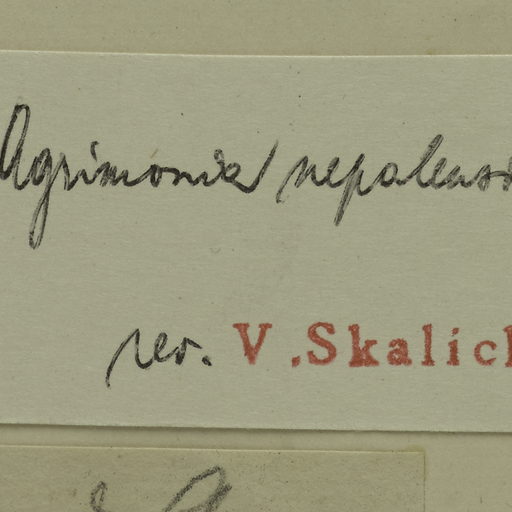 Agrimonia nepalensi
rev. V.Skalich